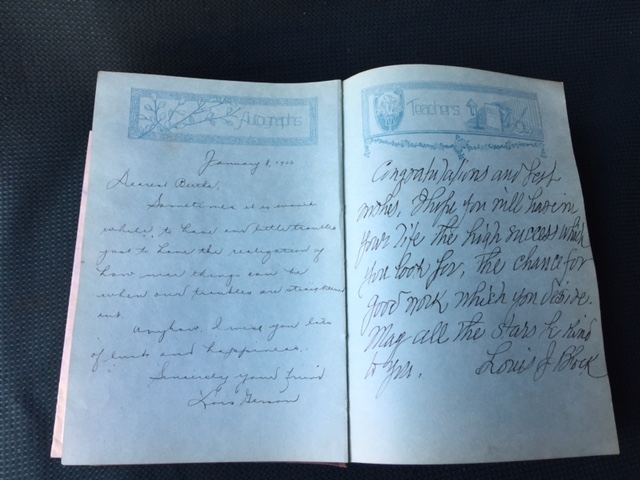 Autographs
January 8, 19
Dearest
Sometimes it is worth
while, to have our little troubles
just to have the realization of
how nice things can be
when our troubles are straightened
out.
Anyhow, I wish you lots
of luck and happiness.
Sincerely your friend
Lois Gerson
Teachers
Congratulations and best
wishes. I hope you will have in
your life the high success which
you look for, the chance for
good work which you desire.
May all the stars be kind
to you.
Louis J Block